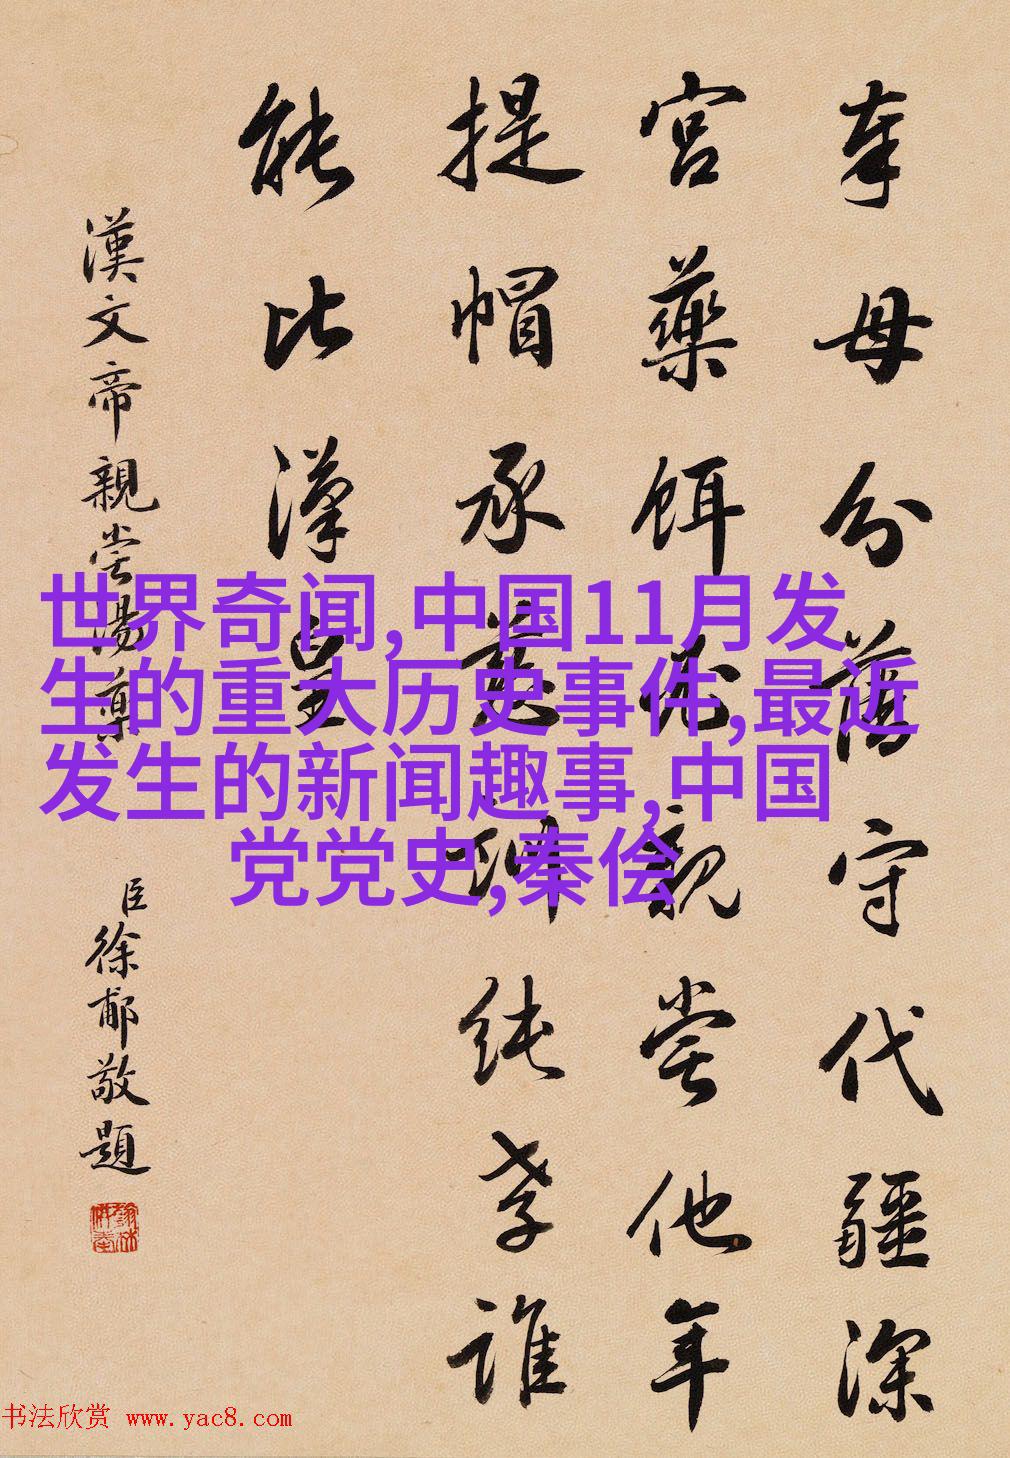 奉母分藩守代疆深
宮藥餌必親嘗他年
提帽承慈訓純孝誰
能比漢皇
漢文帝親嘗湯藥
臣徐郙敬題
世界奇闻,中国11月发
生的重大历史事件,最近
发生的新闻趣事,中国
党党史,秦侩
书法欣赏 www.yac8.com